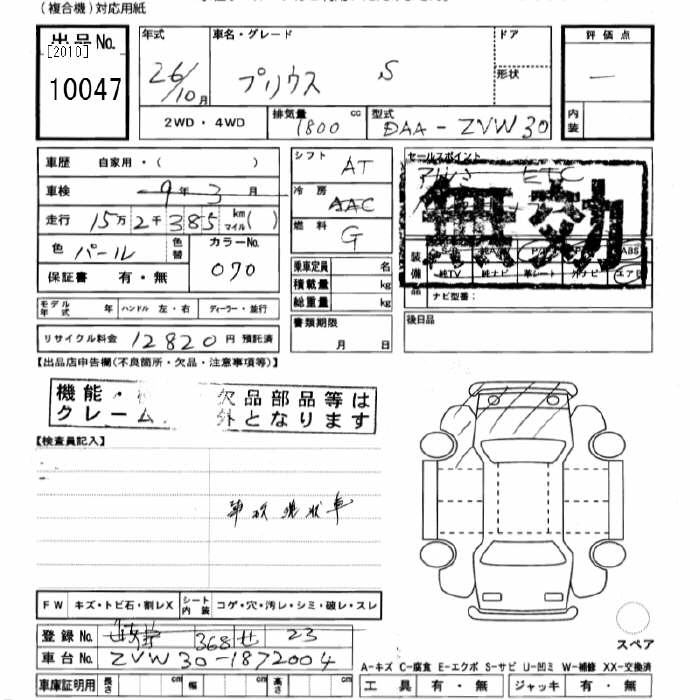 (複合機)対応用紙
出品No.
[2010]
10047
年式
26/10月
車名・グレード
プリウス S
ドア
形状
2WD・4WD
排気量
1800 cc
型式
DAA-ZVW30
評価点
—
内装
車歴 自家用・( )
車検 9年 3月
走行 15万2千385 km マイル( )
色 パール
色替
カラーNo.
070
保証書 有・無
シフト AT
冷房 AAC
燃料 G
乗車定員 名
積載量 kg
総重量 kg
書類期限
月 日
セールスポイント
ETC
無効
装備品
純TV 純ナビ 革シート 外ナビ エアB
ABS
ナビ型番:
後日品
モデル年式 年 ハンドル 左・右 ディーラー・並行
リサイクル料金 12820円 預託済
【出品店申告欄(不良箇所・欠品・注意事項等)】
機能・ 欠品部品等は
クレーム 外となります
【検査員記入】
事故現状車
FW キズ・トビ石・割レX シート内装 コゲ・穴・汚レ・シミ・破レ・スレ
登録No. 368 せ 23
車台No. ZVW30-1872004
車庫証明用 長さ cm 幅 cm 高さ cm
スペア
A-キズ C-腐食 E-エクボ S-サビ U-凹ミ W-補修 XX-交換済
工具 有・無 ジャッキ 有・無